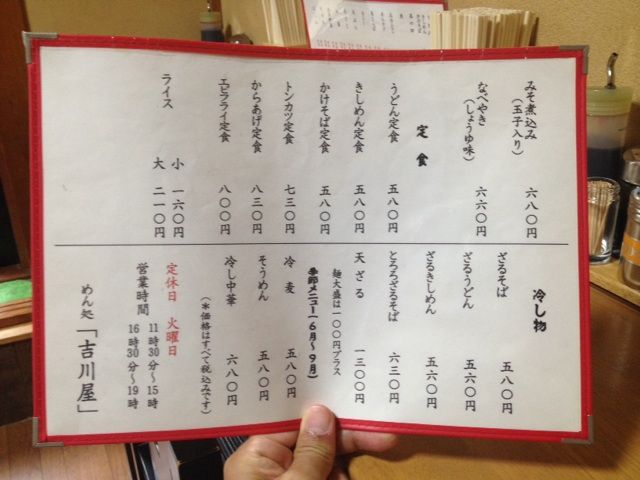 みそ煮込み
(玉子入り)
六八〇円
なべやき
(しょうゆ味)
六六〇円
定食
うどん定食 五八〇円
きしめん定食 五八〇円
かけそば定食 五八〇円
トンカツ定食 七三〇円
からあげ定食 八三〇円
エビフライ定食 八〇〇円
ライス
小 一六〇円
大 二一〇円
冷し物
ざるそば 五八〇円
ざるうどん 五六〇円
ざるきしめん 五六〇円
とろろざるそば 六三〇円
天ざる 一三〇〇円
麺大盛は一〇〇円プラス
季節メニュー(6月~9月)
冷麦 五八〇円
そうめん 五八〇円
冷し中華 六八〇円
(*価格はすべて税込みです)
定休日 火曜日
営業時間 11時30分~15時
16時30分~19時
めん処「吉川屋」